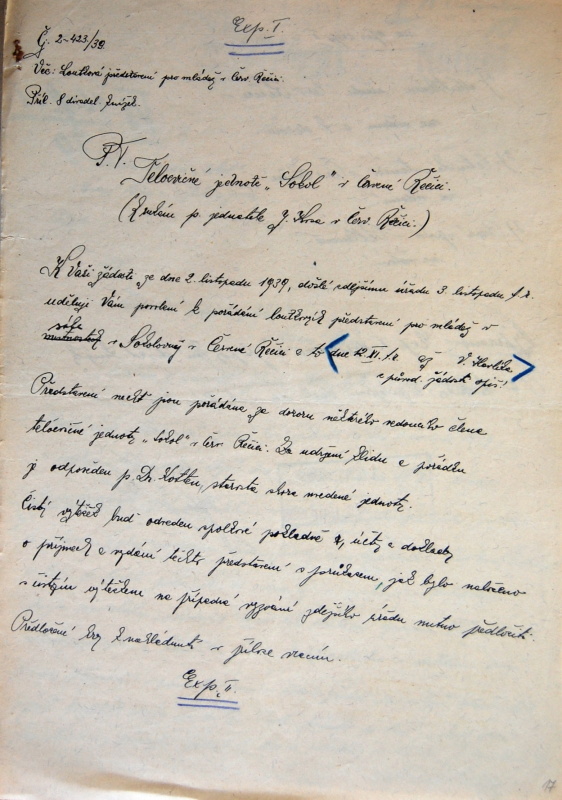 Exp. I.
Č. 2-423/39
Věc: Loutková představení pro mládež v Červ. Řečici.
Příl. 8 divadel. knížek.
P.T.
Tělocvičné jednotě „Sokol" v Červené Řečici.
(K rukám p. jednatele J. v Červ. Řečici.)
K Vaší žádosti ze dne 2. listopadu 1939, došlé zdejšímu úřadu 3. listopadu t. r.
uděluji Vám povolení k pořádání loutkových představení pro mládež v
sále
místnostech v Sokolovny v Červené Řečici a to dne 12. XI. t.r.
z původ. žádosti opis!
Představení nechť jsou pořádána za dozoru některého vedoucího člena
tělocvičné jednoty „Sokol" v Červ. Řečici. Za udržení klidu a pořádku
je odpověden p. Dr. starosta shora uvedené jednoty.
Čistý výtěžek budiž odveden spolkové pokladně a, účty a doklady
o příjmech a vydání těchto představení s průkazem, jak bylo naloženo
s čistým výtěžkem na případné vyzvání zdejšího úřadu nutno předložiti.
Předložené hry k nahlédnutí v příloze vracím.
Exp. II.
17